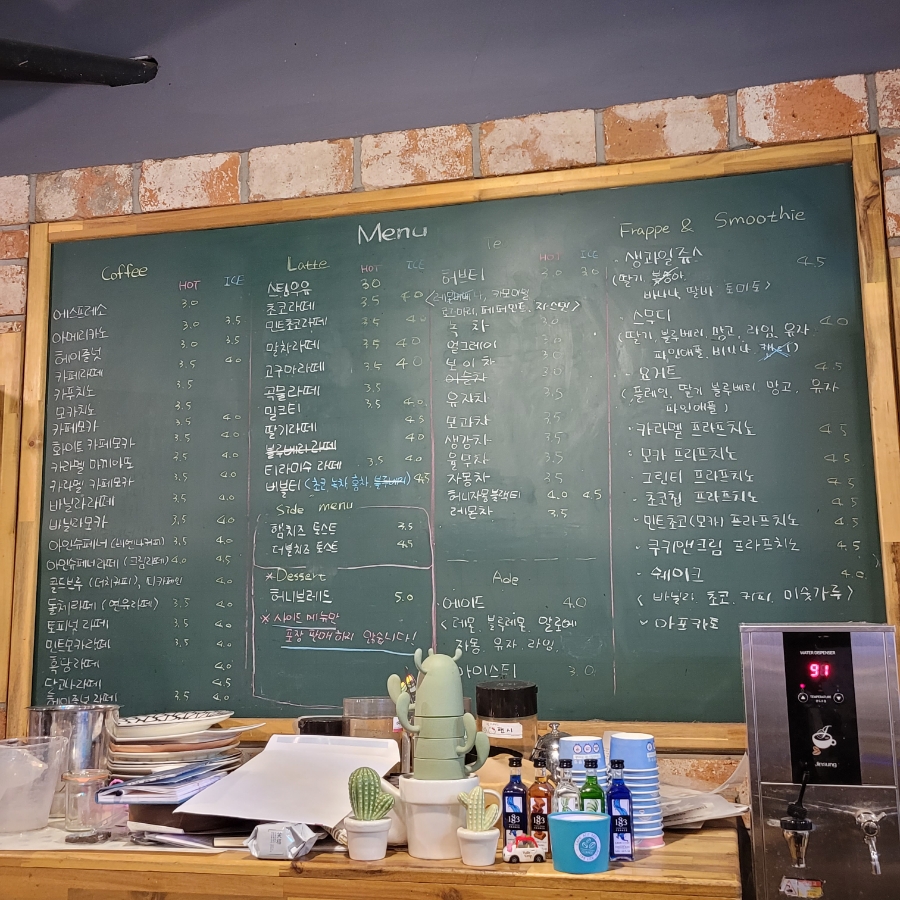 Menu
Coffee
HOT ICE
에스프레소 3.0
아메리카노 3.0 3.5
헤이즐넛 3.5 4.0
카페라떼
카푸치노 3.5
모카치노
카페모카 3.5 4.0
화이트 카페모카 3.5 4.0
카라멜 마끼아또 3.5 4.0
카라멜 카페모카 3.5 4.0
바닐라라떼 3.5 4.0
바닐라모카 3.5 4.0
아인슈페너 (비엔나커피) 3.5 4.0
아인슈페너라떼 (크림라떼) 4.0 4.5
콜드브루 (더치커피), 디카페인 4.0
돌체라떼 (연유라떼) 3.5 4.0
토피넛 라떼 3.5 4.0
민트모카라떼 3.5 4.0
흑당라떼 4.0
달고나라떼 4.5
헤이즐넛 라떼 3.5 4.0
Latte
HOT ICE
스팀우유 3.0
초코라떼 3.5 4.0
민트초코라떼 3.5 4.0
말차라떼 3.5 4.0
고구마라떼 3.5 4.0
곡물라떼 3.5
밀크티 3.5 4.0
딸기라떼 4.5
블루베리라떼 4.0
티라미수 라떼 3.5 4.0
버블티 (초코, 녹차, 홍차, 블루베리) 4.5
Side menu
햄치즈 토스트 3.5
더블치즈 토스트 4.5
*Dessert
허니브레드 5.0
* 사이드 메뉴만
포장 판매하지 않습니다!
Te
HOT ICE
허브티 3.0 3.0
카모마일
페퍼민트, 자스민>
녹 차 3.0
얼그레이 3.0
3.0
이슬차 3.0
유자차 3.5
모과차 3.5
생강차 3.5
율무차 3.5
자몽차 3.5
허니자몽블랙티 4.0 4.5
레몬차 3.5
Ade
·에이드 4.0
<레몬, 블루레몬, 알로에
자몽, 유자, 라임,
아이스티 3.0
Frappe & Smoothie
· 생과일쥬스 4.5
(딸기,
바나나, 딸바, 토마토)
· 스무디 4.0
(딸기, 블루베리, 망고, 라임, 유자
파인애플, 바나나,
· 요거트
(플레인, 딸기, 블루베리, 망고, 유자
파인애플)
· 카라멜 프라프치노 4.5
· 모카 프라프치노 4.5
· 그린티 프라프치노 4.5
· 초코칩 프라프치노 4.5
· 민트초코(모카) 프라프치노 4.5
· 쿠키앤크림 프라프치노 4.5
· 쉐이크 4.0
< 바닐라, 초코, 커피, 미숫가루 >
· 아포카토
WATER DISPENSER
91
TEMPERATURE
183
183